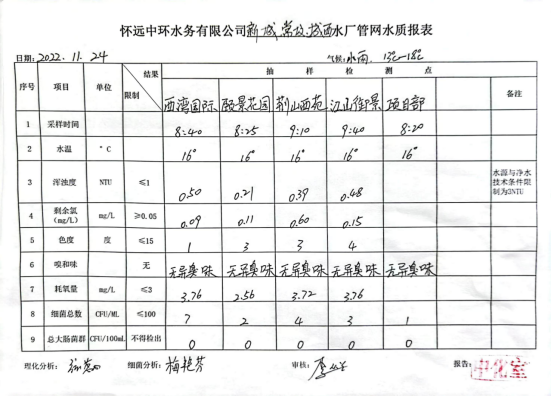 怀远中环水务有限公司新城,常坟,城西水厂管网水质报表
日期: 2022.11.24 气候: 小雨 13℃-18℃
序号 项目 单位 结果 限制 抽样检测点 备注
西湾国际 颐景花园 荆山西苑 江山御景 项目部
1 采样时间 8:40 8:25 9:10 9:40 8:20
2 水温 °C 16° 16° 16° 16° 16°
3 浑浊度 NTU ≤1 0.50 0.21 0.39 0.48 水源与净水技术条件限制为3NTU
4 剩余氯(mg/L) mg/L ≥0.05 0.09 0.11 0.60 0.15
5 色度 度 ≤15 1 3 3 4
6 嗅和味 无 无异臭味 无异臭味 无异臭味 无异臭味 无异臭味
7 耗氧量 mg/L ≤3 3.76 2.56 3.72 3.76
8 细菌总数 CFU/ML ≤100 7 2 4 3 1
9 总大肠菌群 CFU/100mL 不得检出 0 0 0 0 0
理化分析: 细菌分析: 梅艳芬 审核: 报告: 中化室